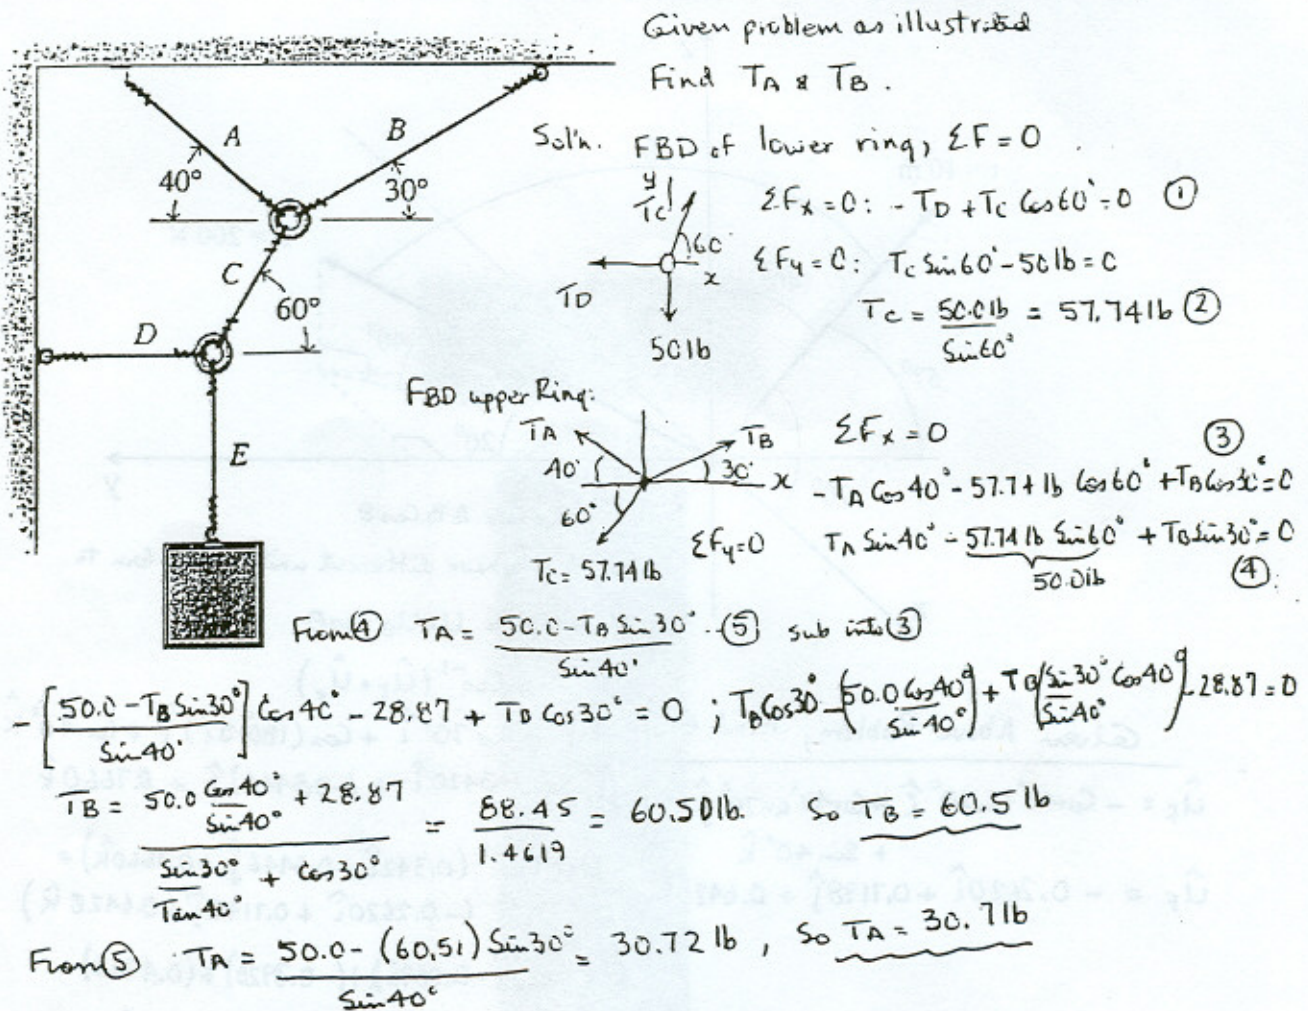 Given problem as illustrated
Find TA & TB.
A
B
40°
30°
C
60°
D
E
Sol'n. FBD of lower ring, ΣF = 0
y
TC
60
x
TD
50 lb
ΣFx = 0: - TD + TC Cos60° = 0 ①
ΣFy = 0: TC Sin60° - 50 lb = 0
TC = 50.0 lb / Sin60° = 57.74 lb ②
FBD upper Ring:
TA
TB
40°
30°
x
60°
TC = 57.74 lb
ΣFx = 0 ③
- TA Cos40° - 57.74 lb Cos60° + TB Cos30° = 0
ΣFy = 0 TA Sin40° - 57.74 lb Sin60° + TB Sin30° = 0
50.0 lb ④
From ④ TA = (50.0 - TB Sin30°) / Sin40° ⑤ sub into ③
- [(50.0 - TB Sin30°) / Sin40°] Cos40° - 28.87 + TB Cos30° = 0 ; TB Cos30° - (50.0 Cos40° / Sin40°) + TB (Sin30° Cos40° / Sin40°) - 28.87 = 0
TB = (50.0 Cos40° / Sin40° + 28.87) / (Sin30° / Tan40° + Cos30°) = 88.45 / 1.4619 = 60.50 lb. So TB = 60.5 lb
From ⑤ : TA = (50.0 - (60.51) Sin30°) / Sin40° = 30.72 lb , So TA = 30.7 lb